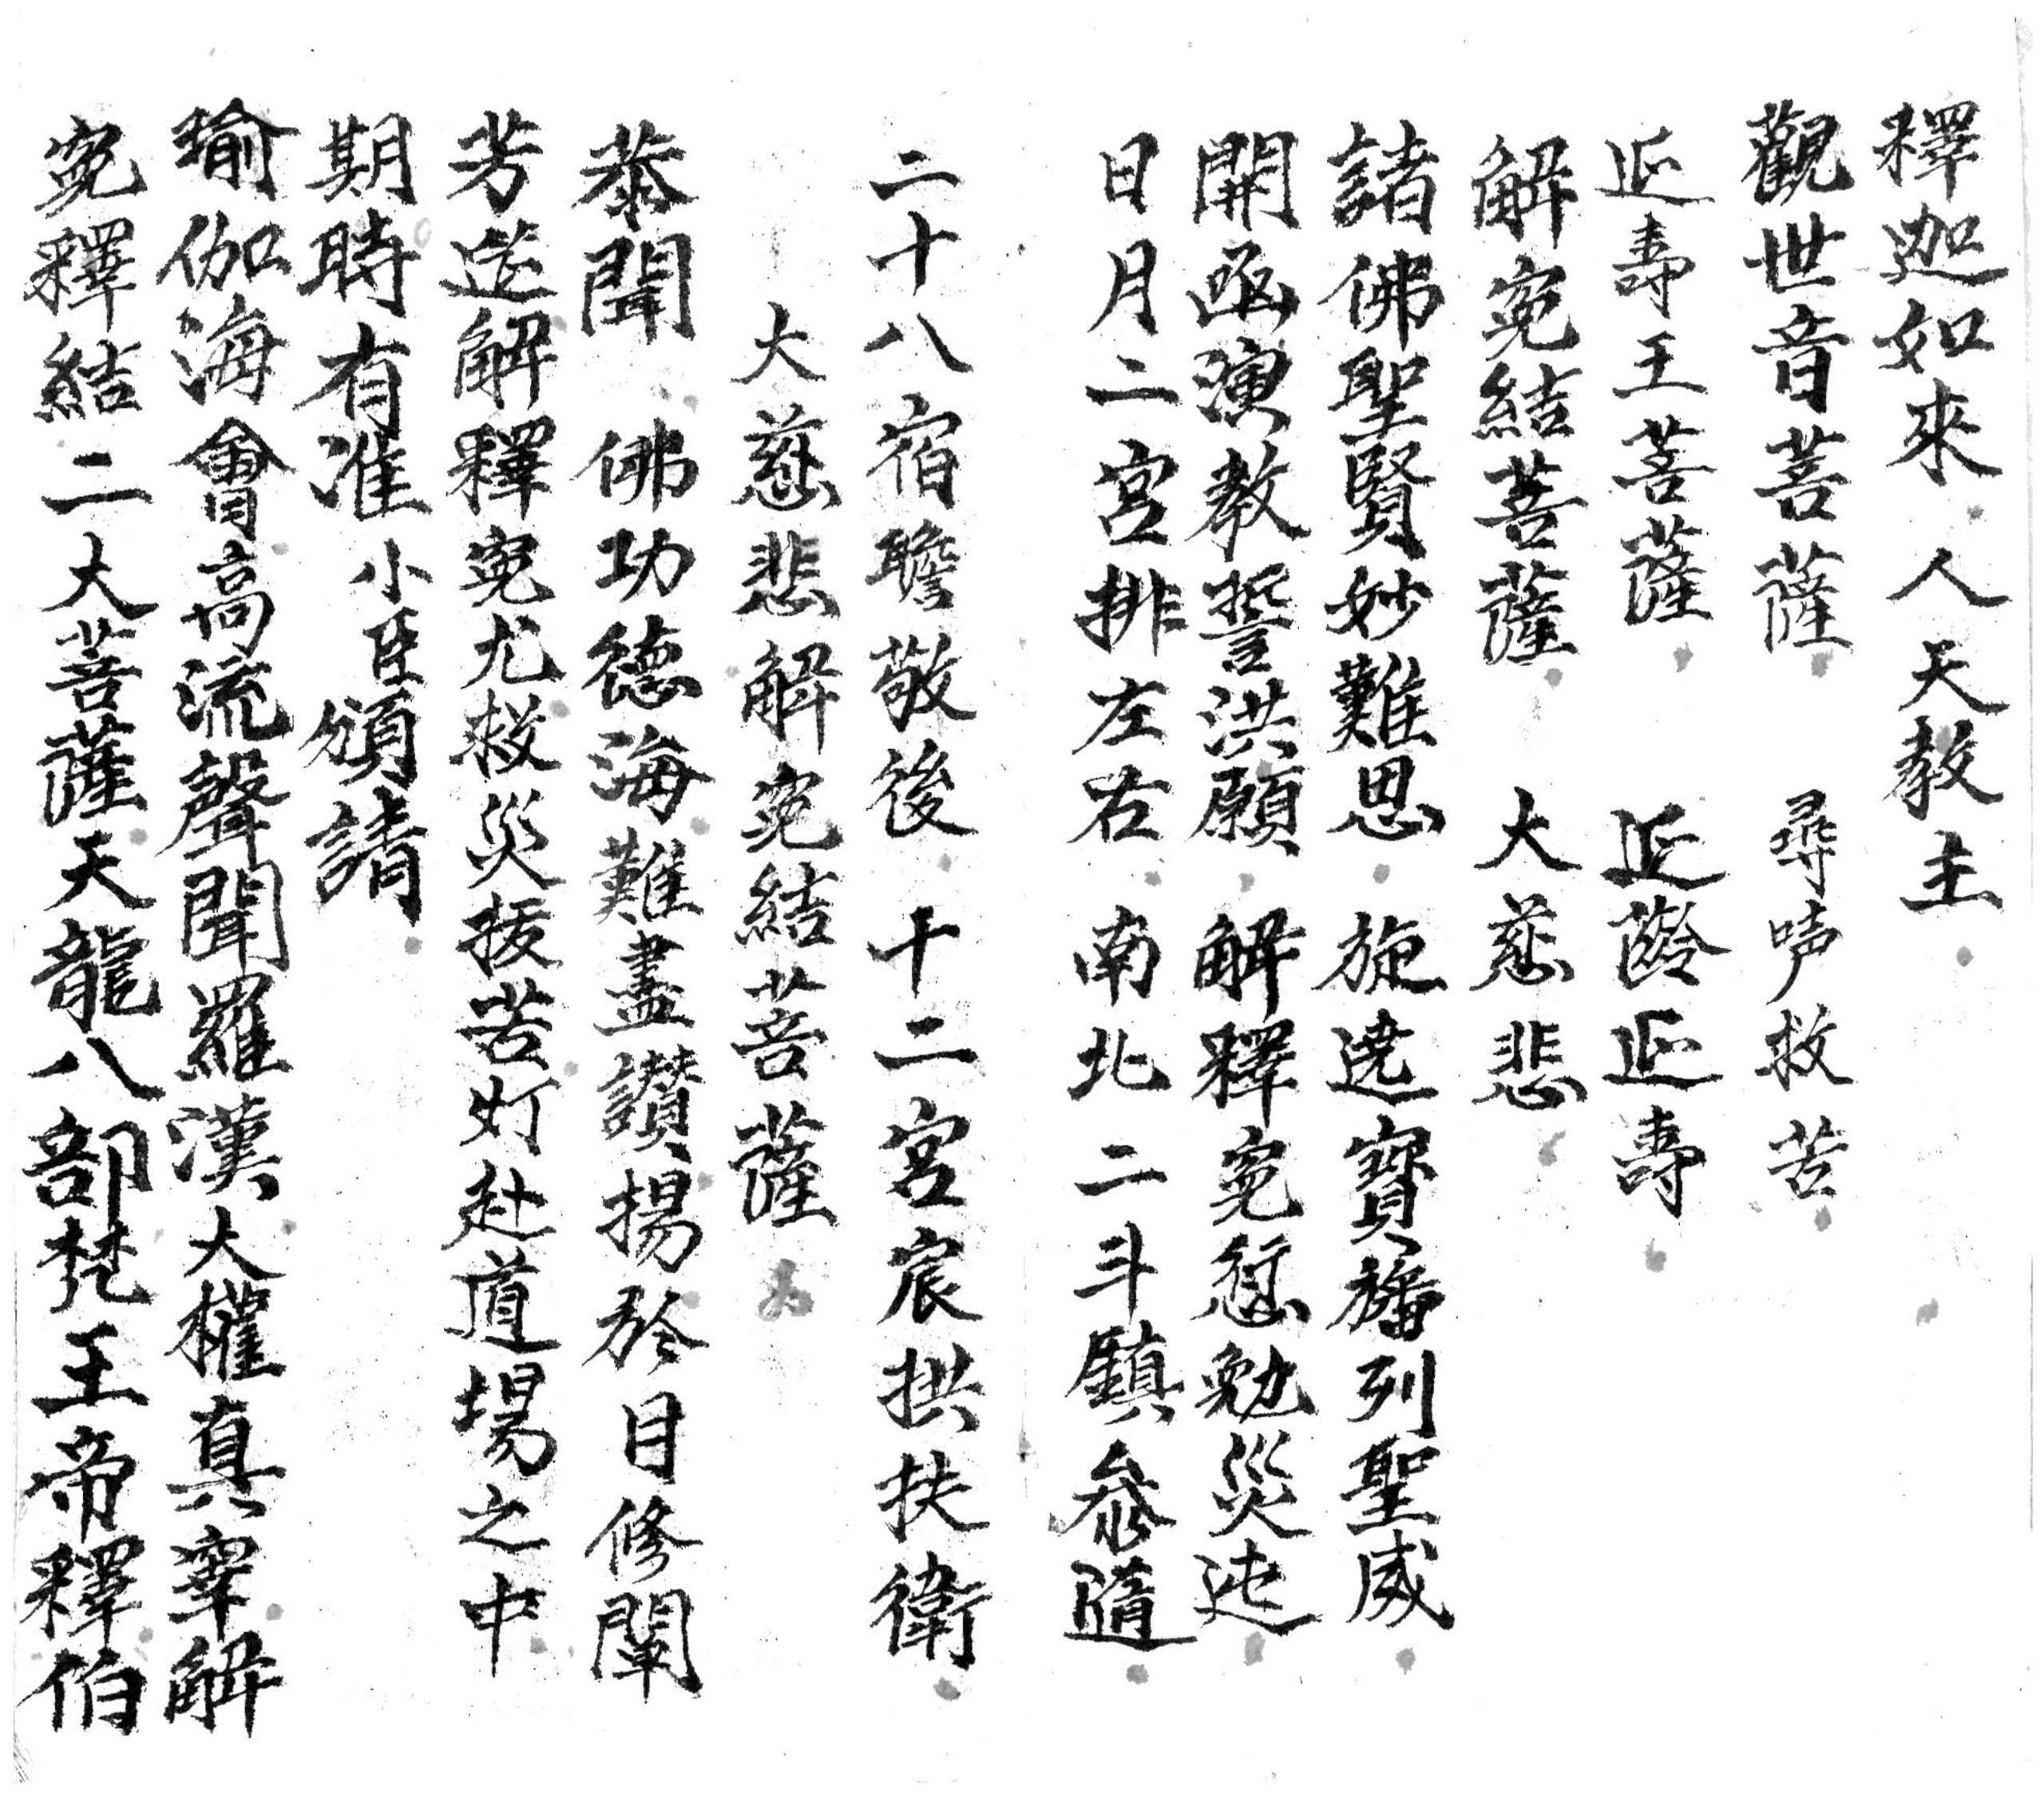 釋迦如來人天教主
觀世音菩薩　尋声救苦
延壽王菩薩　延齡延壽
解冤結菩薩　大慈悲
諸佛聖賢妙難思　旋遶寶旛列聖威
開函演教誓洪愿　解釋冤愆勉災迍
日月二宮排左右　南北二斗鎮叅隨
二十八宿瞻敬後　十二宮宸拱扶衛
大慈悲解冤結菩薩
恭聞　佛功德海難盡讃揚於日修闡
芳筵解釋冤尤救災拔苦灯赴道場之中
期時有准小臣頒請
瑜伽海會高流聲聞羅漢大權真宰解
冤釋結二大菩薩天龍八部梵王帝釋伯